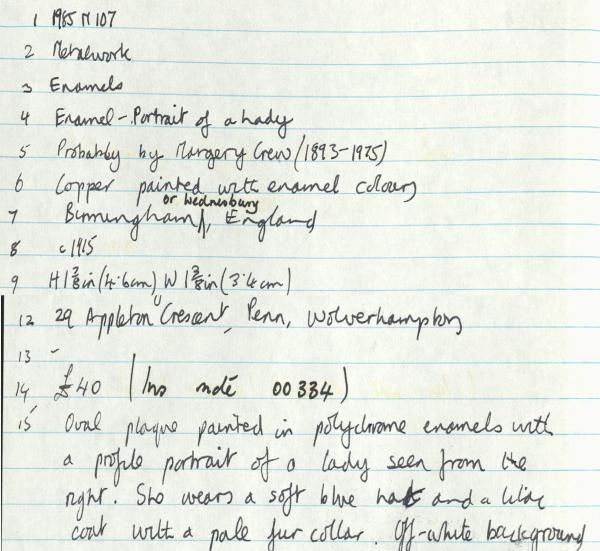 1 1985 M107
2 Metalwork
3 Enamels
4 Enamel-Portrait of a Lady
5 Probably by Margery Crew (1893-1975)
6 Copper painted with enamel colours
or Wednesbury
7 Birmingham, England
8 c1915
9 H 1 3/8in (4.6cm) W 1 3/8in (3.4cm)
12 29 Appleton Crescent, Penn, Wolverhampton
13 -
14 £40 (Ins note 00334)
15 Oval plaque painted in polychrome enamels with
a profile portrait of a lady seen from the
right. She wears a soft blue hat and a lilac
coat with a pale fur collar. Off-white background